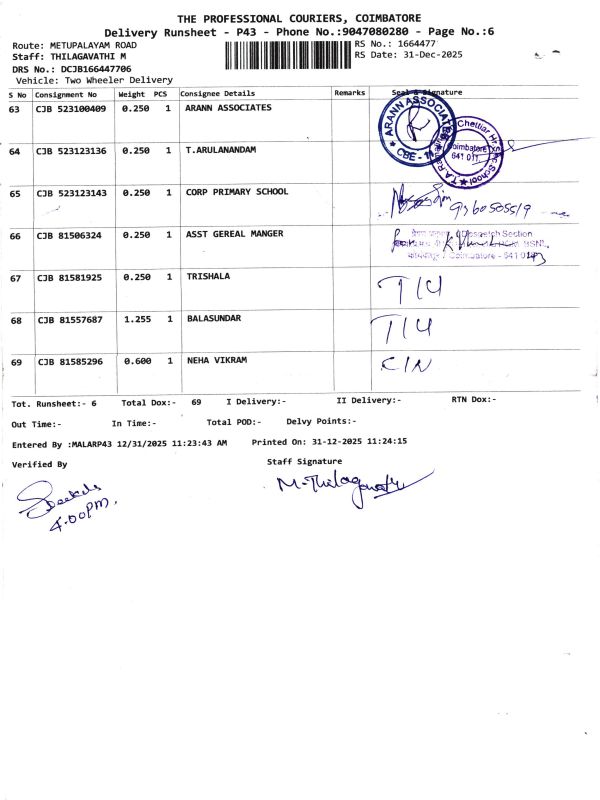 THE PROFESSIONAL COURIERS, COIMBATORE
Delivery Runsheet - P43 - Phone No.:9047080280 - Page No.:6
Route: METUPALAYAM ROAD RS No.: 1664477
Staff: THILAGAVATHI M RS Date: 31-Dec-2025
DRS No.: DCJB166447706
Vehicle: Two Wheeler Delivery
S No Consignment No Weight PCS Consignee Details Remarks Seal & Signature
63 CJB 523100409 0.250 1 ARANN ASSOCIATES
ARANN ASSOCIATES
CBE - 11
64 CJB 523123136 0.250 1 T.ARULANANDAM
Chettiar Hr. Sec. School
Coimbatore
641 011
65 CJB 523123143 0.250 1 CORP PRIMARY SCHOOL
66 CJB 81506324 0.250 1 ASST GEREAL MANGER
Despatch Section
BSNL
Coimbatore - 641 0
67 CJB 81581925 0.250 1 TRISHALA T/4
68 CJB 81557687 1.255 1 BALASUNDAR T/4
69 CJB 81585296 0.600 1 NEHA VIKRAM C/N
Tot. Runsheet:- 6 Total Dox:- 69 I Delivery:- II Delivery:- RTN Dox:-
Out Time:- In Time:- Total POD:- Delvy Points:-
Entered By :MALARP43 12/31/2025 11:23:43 AM Printed On: 31-12-2025 11:24:15
Verified By Staff Signature
M. Thilagavathi
4.00PM.